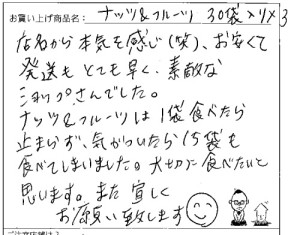 お買い上げ商品名： ナッツ&フルーツ 30袋入り×3
店名から本気を感じ(笑)、お安くて
発送もとても早く、素敵な
ショップさんでした。
ナッツ&フルーツは1袋食べたら
止まらず、気がついたら15袋も
食べてしまいました。大切に食べたいと
思います。また宜しく
お願い致します